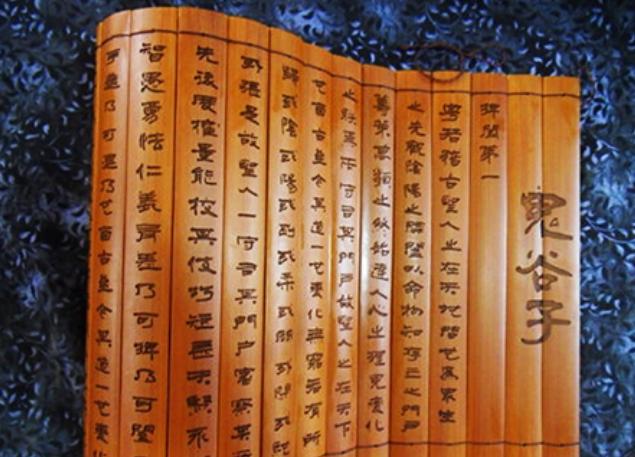 鬼谷子
捭闔第一
粵若稽古聖人之在天地間也爲衆生
之先觀陰陽之開闔以命物知存亡之門戶
籌策萬類之終始達人心之理見變化
之朕焉而守司其門戶故聖人之在天下
也自古至今其道一也變化無窮各有所
歸或陰或陽或剛或柔或開或閉或弛
或張是故聖人一守司其門戶審察其
先後度權量能校其伎巧短長夫賢不
智愚勇怯仁義齊差乃可捭乃可闔
乃可退乃也自古至今其道一也變化